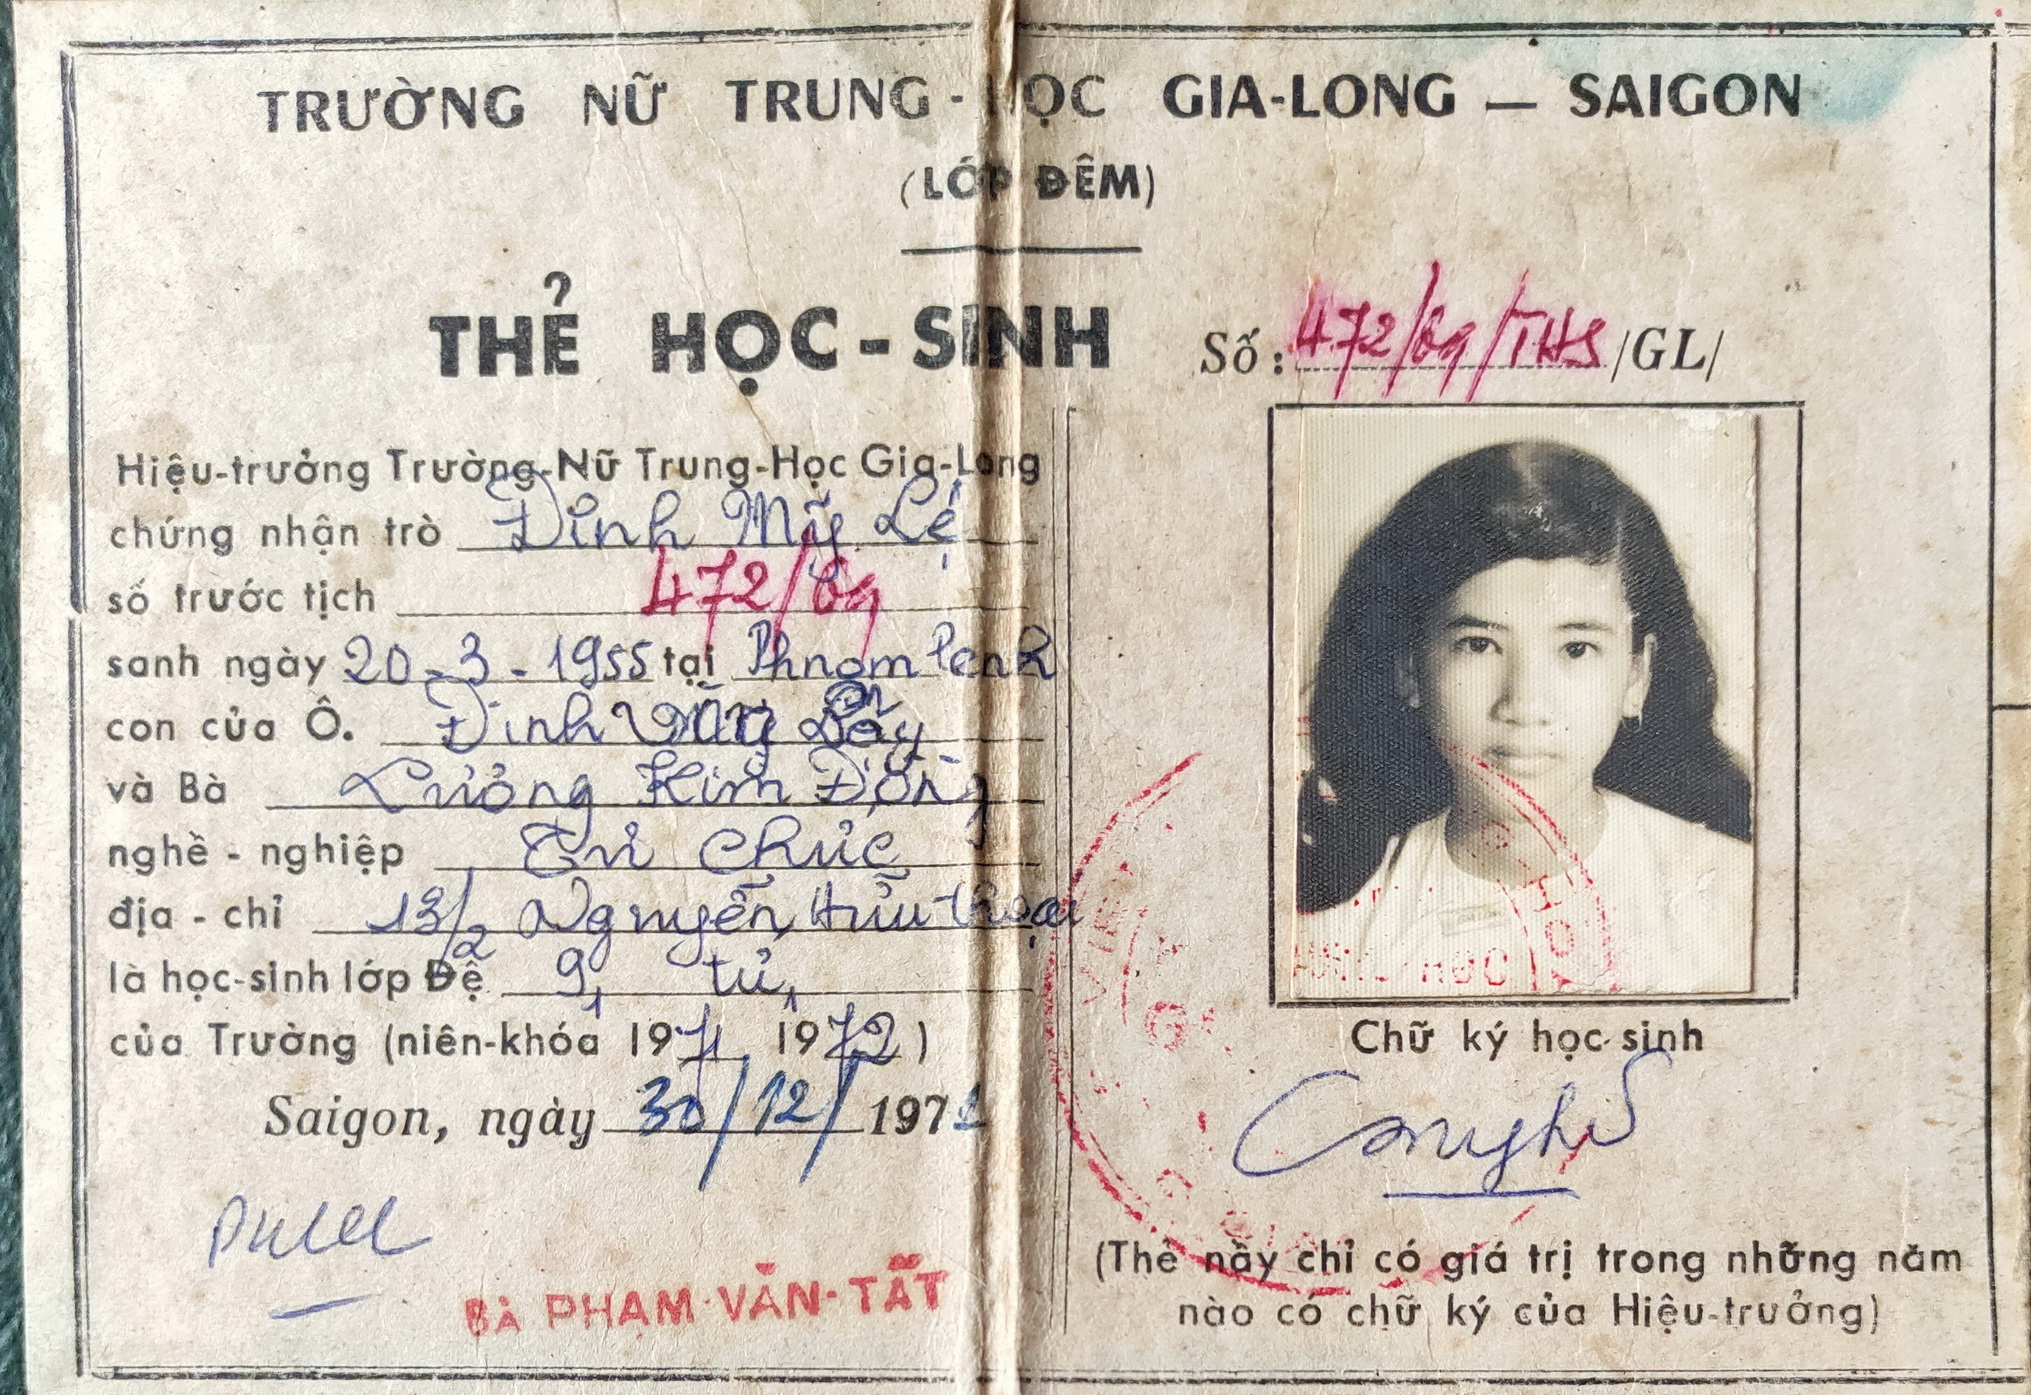 TRƯỜNG NỮ TRUNG-HỌC GIA-LONG — SAIGON
(LỚP ĐÊM)
THẺ HỌC-SINH
Số: 472/69/THS/GL/
Hiệu-trưởng Trường-Nữ Trung-Học Gia-Long
chứng nhận trò Đinh Mỹ Lệ
số trước tịch 472/69
sanh ngày 20-3-1955 tại Phnom Penh
con của Ô. Đinh
và Bà Lương Kim Đồng
nghề - nghiệp Tư chức
địa - chỉ 13/2 Nguyễn Hữu Thoại
là học-sinh lớp Đệ 9/1 tứ 1
của Trường (niên-khóa 1971 1972)
Saigon, ngày 30/12/1971
BÀ PHẠM-VĂN-TẤT
Chữ ký học sinh
(Thẻ nầy chỉ có giá trị trong những năm
nào có chữ ký của Hiệu-trưởng)